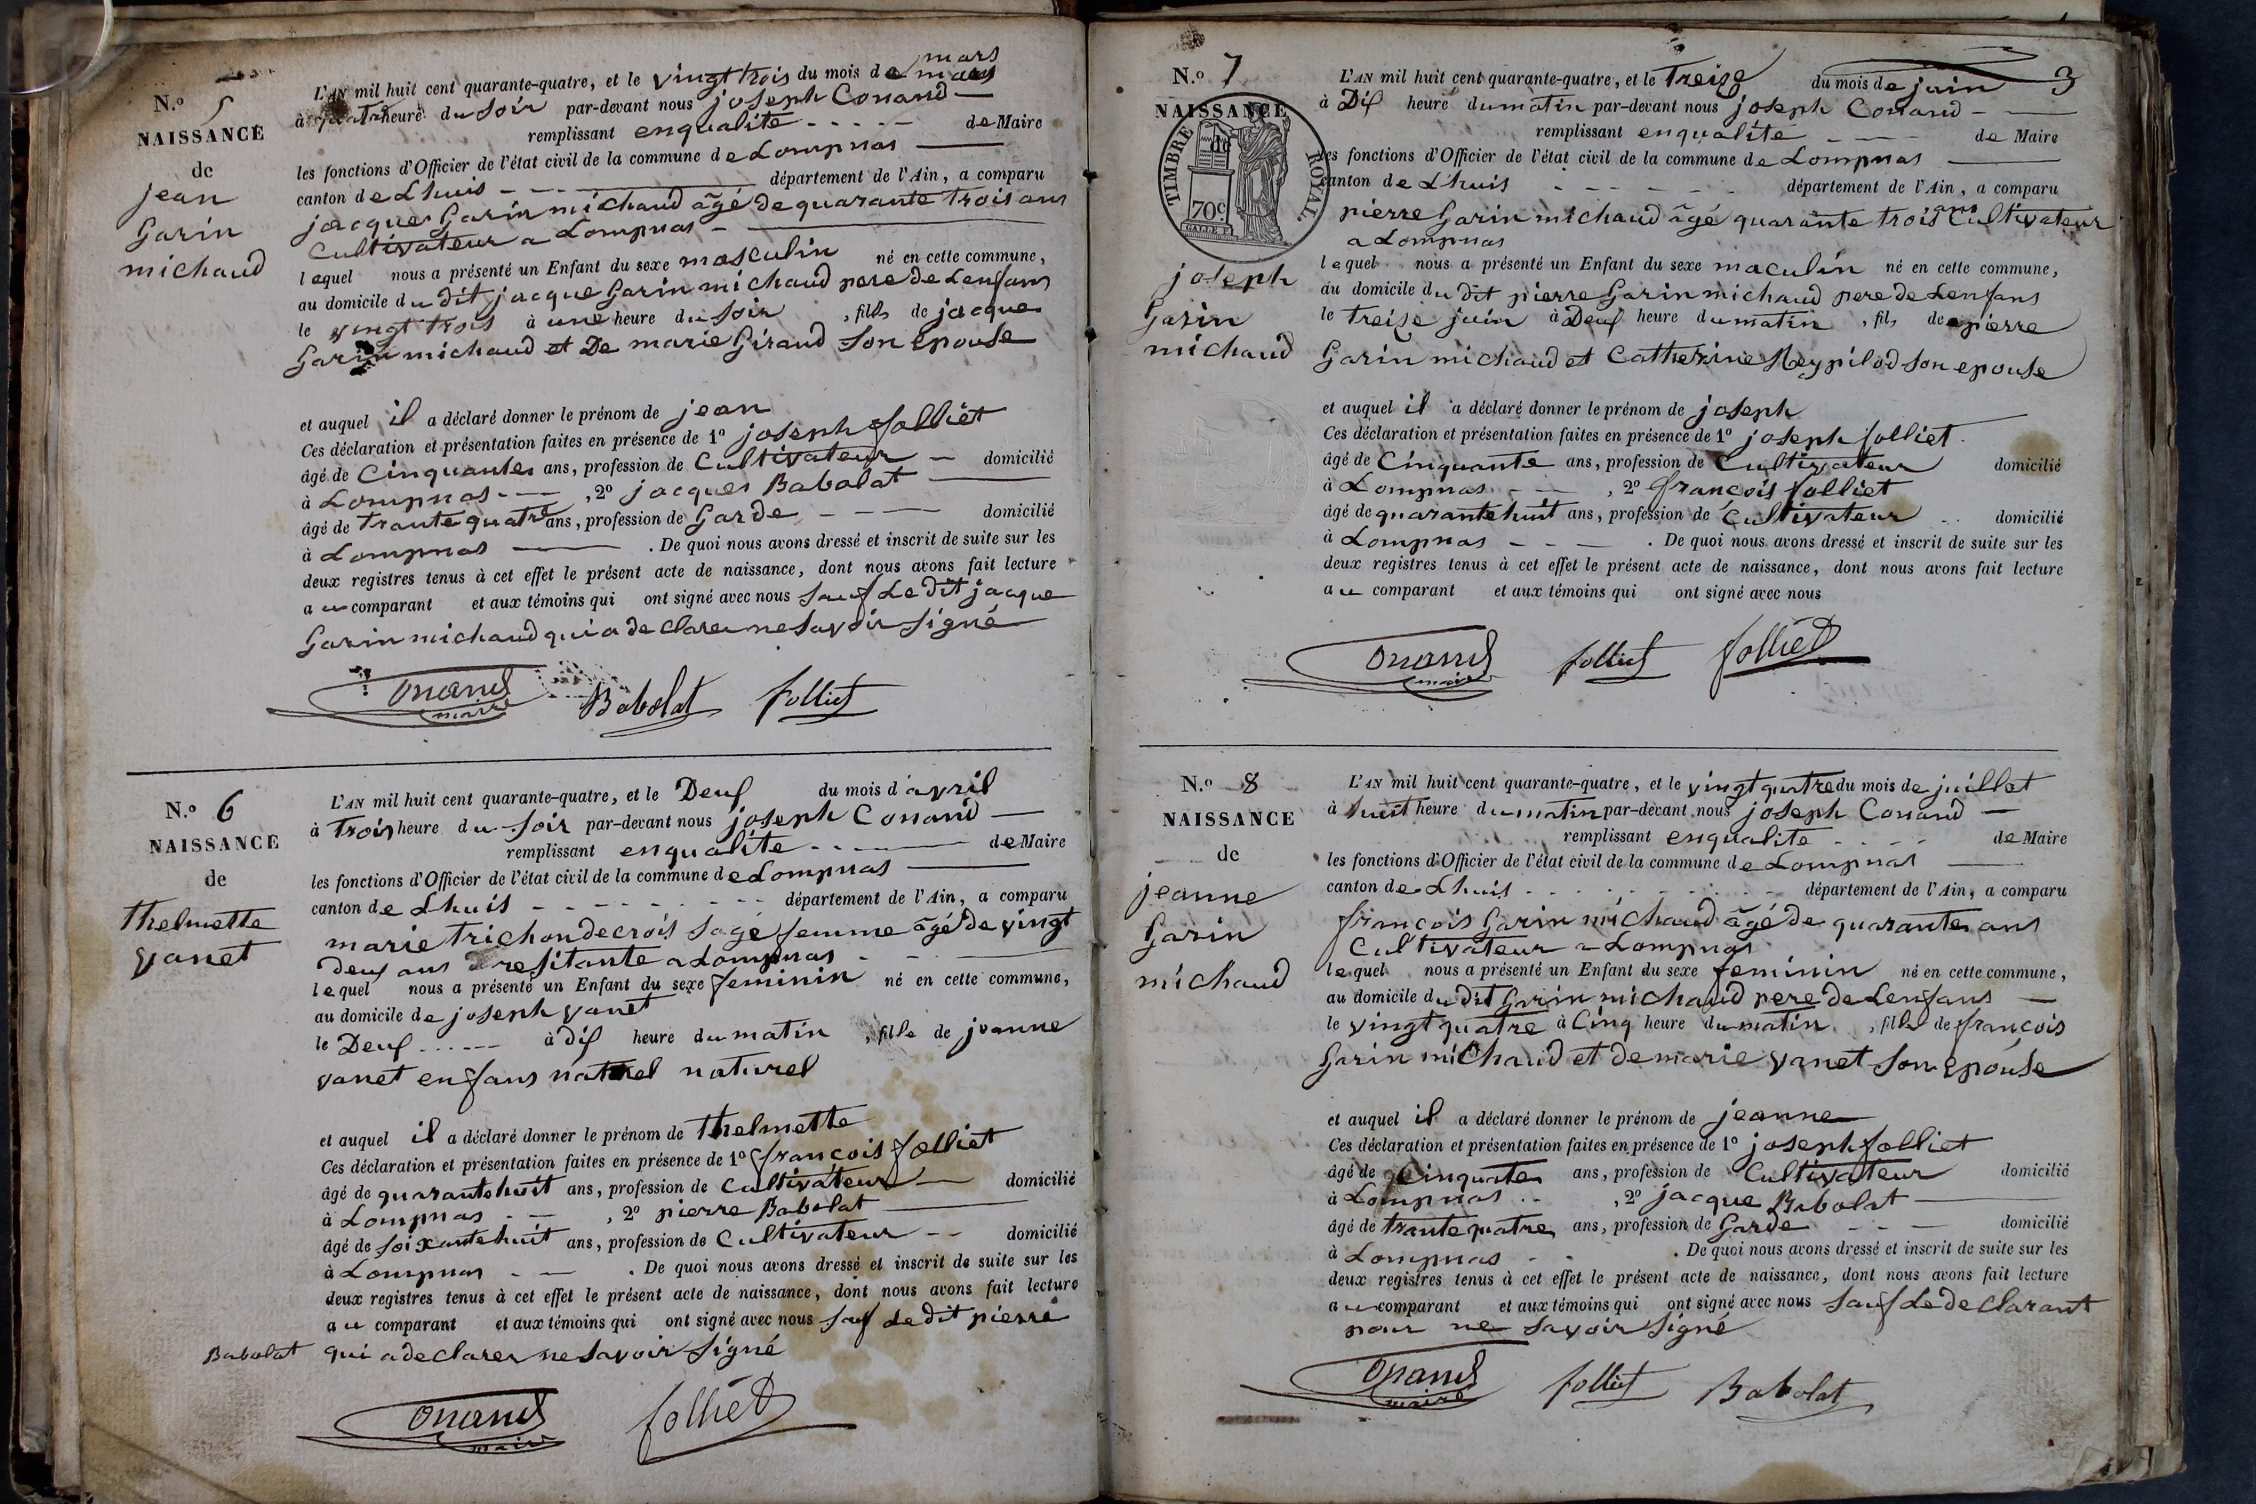 N.o 5
NAISSANCE
de
jean
Garin
michaud
mars
L'AN mil huit cent quarante-quatre, et le vingt trois du mois de mars
à quatre heure du soir par-devant nous joseph Conand
remplissant enqualité de Maire
les fonctions d'Officier de l'état civil de la commune de Lompnas
canton de Lhuis département de l'Ain, a comparu
jacques Garin michaud âgé de quarante trois ans
Cultivateur a Lompnas
lequel nous a présenté un Enfant du sexe masculin né en cette commune,
au domicile du dit jacque Garin michaud pere de Lenfans
le vingt trois à une heure du soir, fils de jacque
Garin michaud et De marie Giraud son Epouse
et auquel il a déclaré donner le prénom de jean
Ces déclaration et présentation faites en présence de 1o joseph folliet
âgé de Cinquante ans, profession de Cultivateur domicilié
à Lompnas, 2o jacques Babolat
âgé de trante quatre ans, profession de Garde domicilié
à Lompnas. De quoi nous avons dressé et inscrit de suite sur les
deux registres tenus à cet effet le présent acte de naissance, dont nous avons fait lecture
au comparant et aux témoins qui ont signé avec nous sauf Le dit jacque
Garin michaud qui a declarer ne savoir signé
Conand
maire
Babolat folliet
N.o 6
NAISSANCE
de
thelmette
vanet
L'AN mil huit cent quarante-quatre, et le Deux du mois d'avril
à trois heure du soir par-devant nous joseph Conand
remplissant enqualité de Maire
les fonctions d'Officier de l'état civil de la commune de Lompnas
canton de Lhuis département de l'Ain, a comparu
marie trichondecrois sage femme âgé de vingt
deux ans resitante a Lompnas
lequel nous a présenté un Enfant du sexe feminin né en cette commune,
au domicile de joseph vanet
le Deux à dix heure du matin, fille de jeanne
vanet enfans natrel naturel
et auquel il a déclaré donner le prénom de thelmette
Ces déclaration et présentation faites en présence de 1o françois folliet
âgé de quarante huit ans, profession de Cultivateur domicilié
à Lompnas, 2o pierre Babolat
âgé de soixante huit ans, profession de Cultivateur domicilié
à Lompnas. De quoi nous avons dressé et inscrit de suite sur les
deux registres tenus à cet effet le présent acte de naissance, dont nous avons fait lecture
au comparant et aux témoins qui ont signé avec nous sauf Le dit pierre
Babolat qui a declarer ne savoir signé
Conand
maire
folliet
3
N.o 7
NAISSANCE
de
TIMBRE ROYAL
70c
joseph
Garin
michaud
L'AN mil huit cent quarante-quatre, et le treize du mois de juin
à Dix heure du matin par-devant nous joseph Conand
remplissant enqualité de Maire
les fonctions d'Officier de l'état civil de la commune de Lompnas
canton de Lhuis département de l'Ain, a comparu
ans
pierre Garin michaud âgé quarante trois Cultivateur
a Lompnas
lequel nous a présenté un Enfant du sexe maculin né en cette commune,
au domicile du dit pierre Garin michaud pere de Lenfans
le treize juin à Deux heure du matin, fils de pierre
Garin michaud et Catherine Reypilod son epouse
et auquel il a déclaré donner le prénom de joseph
Ces déclaration et présentation faites en présence de 1o joseph folliet
âgé de Cinquante ans, profession de Cultivateur domicilié
à Lompnas, 2o françois folliet
âgé de quarante huit ans, profession de Cultivateur domicilié
à Lompnas. De quoi nous avons dressé et inscrit de suite sur les
deux registres tenus à cet effet le présent acte de naissance, dont nous avons fait lecture
au comparant et aux témoins qui ont signé avec nous
Conand
maire
folliet folliet
N.o 8
NAISSANCE
de
jeanne
Garin
michaud
L'AN mil huit cent quarante-quatre, et le vingt quatre du mois de juillet
à huit heure du matin par-devant nous joseph Conand
remplissant enqualité de Maire
les fonctions d'Officier de l'état civil de la commune de Lompnas
canton de Lhuis département de l'Ain, a comparu
françois Garin michaud âgé de quarante ans
Cultivateur a Lompnas
lequel nous a présenté un Enfant du sexe feminin né en cette commune,
au domicile du dit Garin michaud pere de Lenfans
le vingt quatre à Cinq heure du matin, fille de françois
Garin michaud et de marie vanet son Epouse
et auquel il a déclaré donner le prénom de jeanne
Ces déclaration et présentation faites en présence de 1o joseph folliet
âgé de Cinquate ans, profession de Cultivateur domicilié
à Lompnas, 2o jacque Babolat
âgé de trante quatre ans, profession de Garde domicilié
à Lompnas. De quoi nous avons dressé et inscrit de suite sur les
deux registres tenus à cet effet le présent acte de naissance, dont nous avons fait lecture
au comparant et aux témoins qui ont signé avec nous sauf Le declarant
pour ne savoir signé
Conand
maire
folliet Babolat